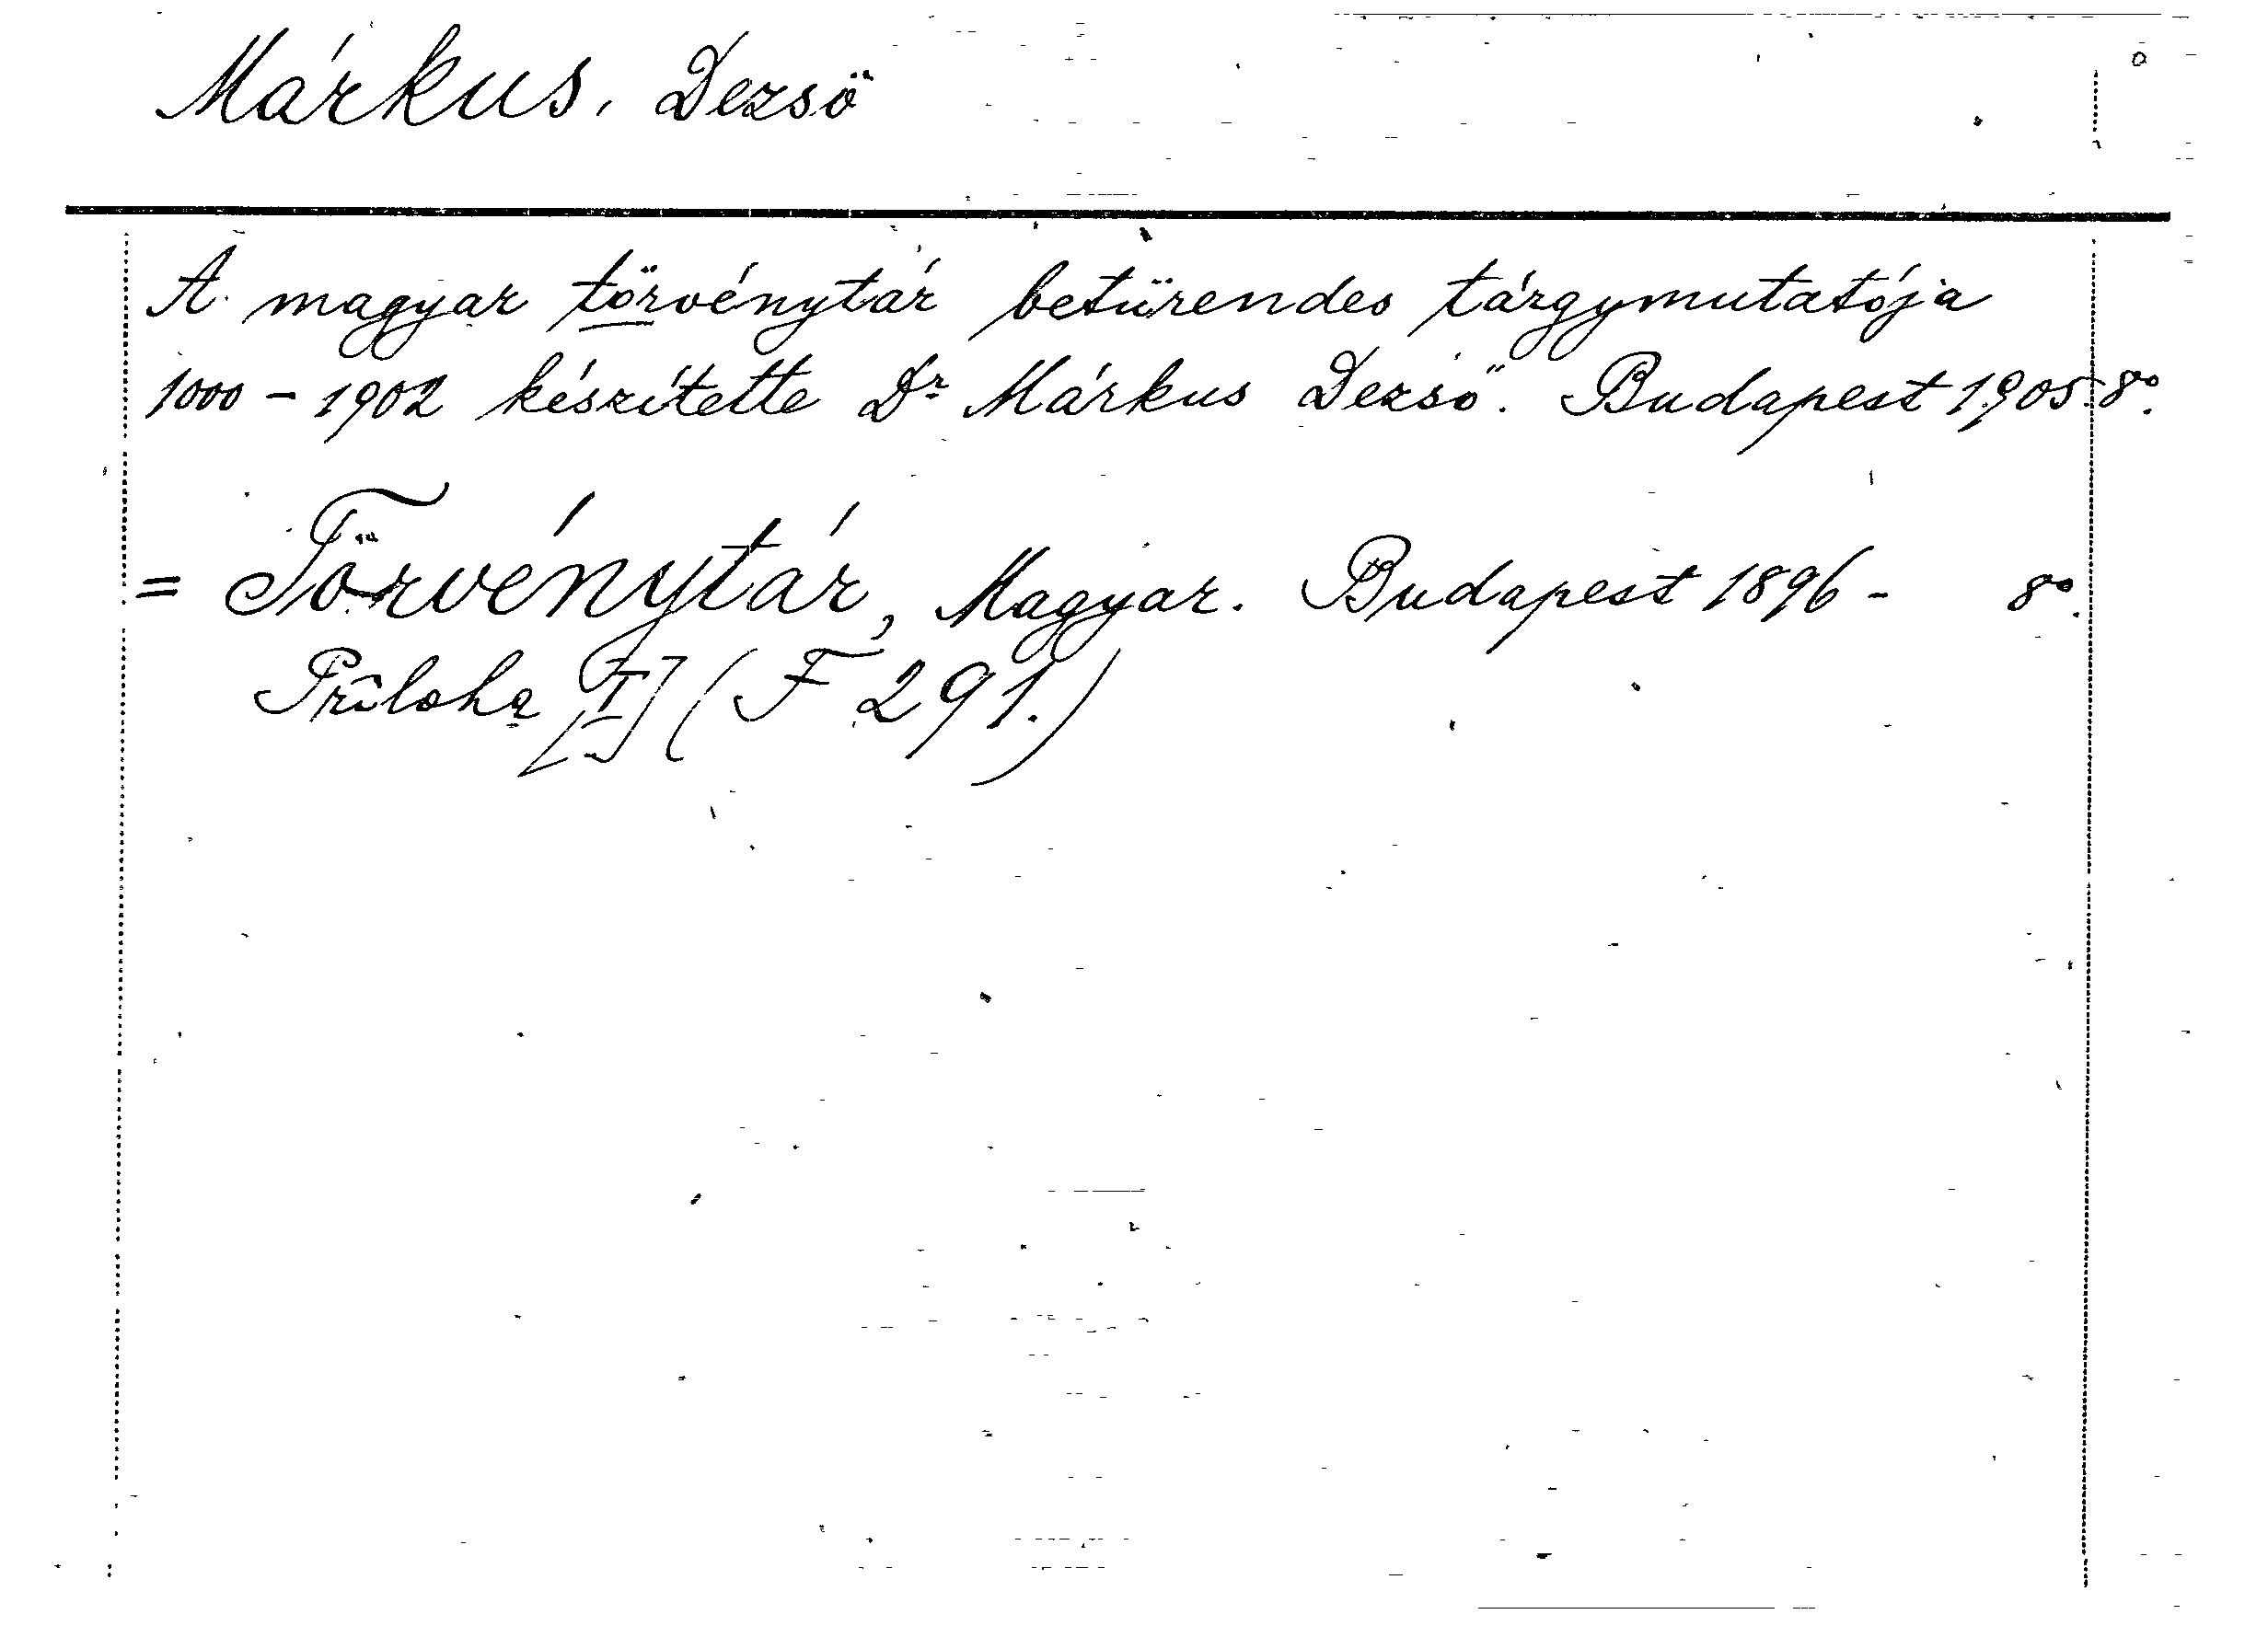 Márkus, Dezsö
A magyar törvénytár betürendes tárgymutatója
1000 - 1902 készítette Dr Márkus Dezső. Budapest 1905. 8º.
= Törvénytár, Magyar. Budapest 1896 - 8º.
Příloha [I] (F 291.)